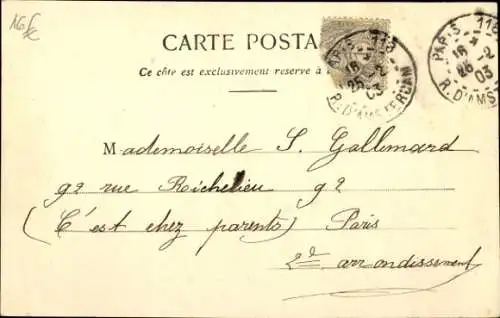 16f
CARTE POSTA
Ce côté est exclusivement réservé à
PARIS 118
16 2
25 03
R. D'AMSTERDAM
PARIS 118
16 2
25 03
R. D'AMST
Mademoiselle S. Gallemard
92 rue Richelieu 92
(C'est chez parents) Paris
2d arrondissement